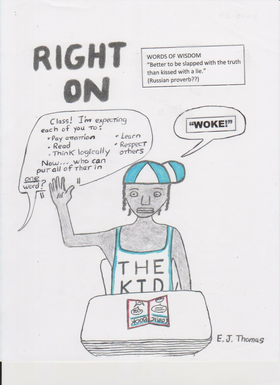 RIGHT
ON
WORDS OF WISDOM
"Better to be slapped with the truth
than kissed with a lie."
(Russian proverb??)
Class! I'm expecting
each of you to:
• Pay attention
• Learn
• Read
• Respect
others
• Think logically
Now.... who can
put all of that in
one
word?
"WOKE!"
THE
KID
E.J. Thomas